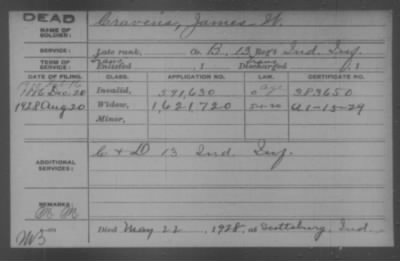 DEAD
NAME OF SOLDIER: Cravens, James W.
SERVICE: Late rank, Co. B, 13 Reg't Ind. Inf.
TERM OF SERVICE: Enlisted , 1 Discharged , 1
DATE OF FILING. CLASS. APPLICATION NO. LAW. CERTIFICATE NO.
Dec 20 Invalid, 591,630 age 383650
1928 Aug 20 Widow, 1,621,720 A-1-15-29
Minor,
ADDITIONAL SERVICES: C & D 13 Ind. Inf.
REMARKS:
Died May 22, 1928, at Scottsburg, Ind.